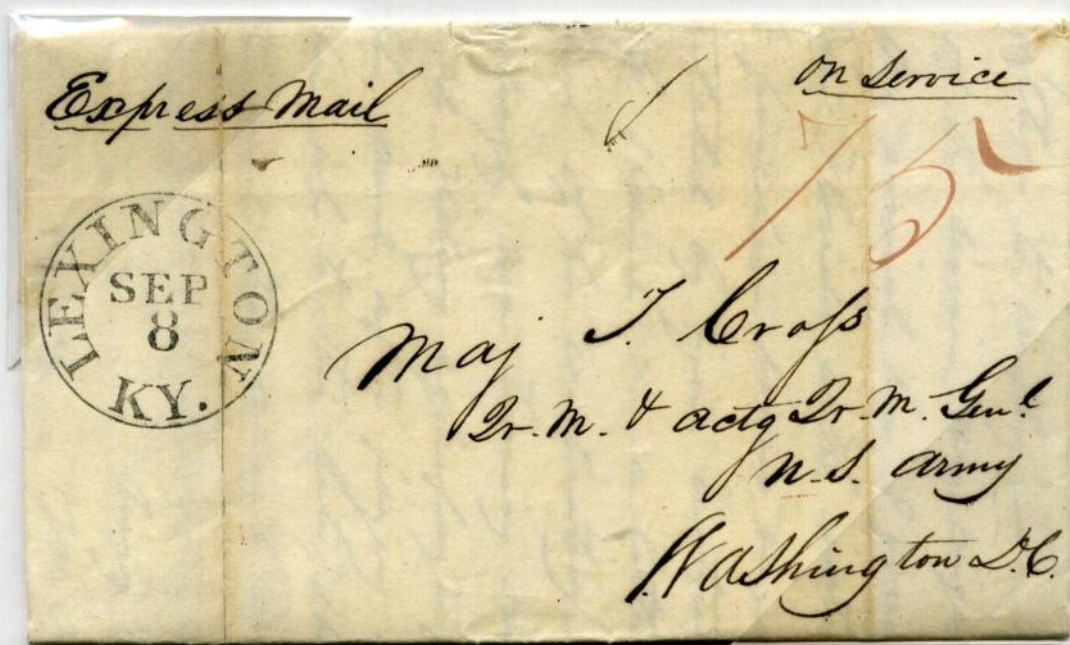 Express Mail
on service
75
LEXINGTON
SEP
8
KY.
Maj T. Cross
Qr. M. & actg Qr. M. Genl.
U.S. army
Washington D.C.